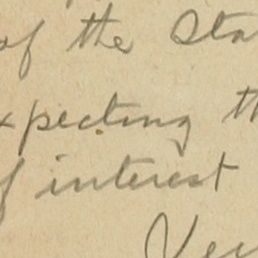 of the Sta
xpecting th
f interest
Ver